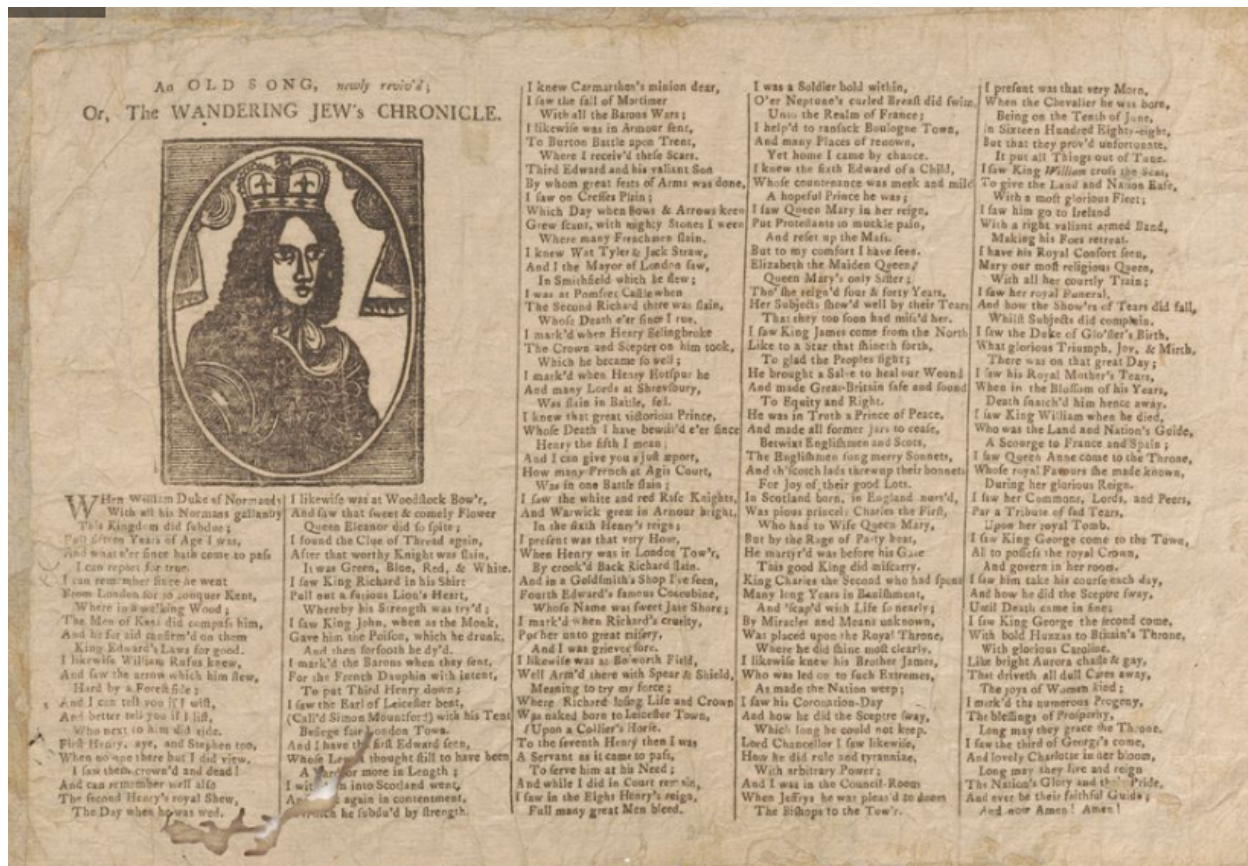 An OLD SONG, newly reviv'd;
Or, The WANDERING JEW's CHRONICLE.
WHen William Duke of Normandy
With all his Normans gallantly
This Kingdom did subdue;
Full fifteen Years of Age I was,
And what e'er since hath come to pass
I can report for true.
I can remember since he went
From London for to conquer Kent,
Where in a walking Wood;
The Men of Kent did compass him,
And he for aid confirm'd on them
King Edward's Laws for good.
I likewise William Rufus knew,
And saw the arrow which him slew,
Hard by a Forest side;
And I can tell you if I wist,
And better tell you if I list,
Who next to him did
First Henry, aye, and Stephen too,
When no one there but I did view,
I saw them crown'd and dead!
And can remember well also
The second Henry's royal Shew,
The Day when he was wed.
I likewise was at Woodstock Bow'r,
And saw that sweet & comely Flower
Queen Eleanor did so spite;
I found the Clue of Thread again,
After that worthy Knight was slain,
It was Green, Blue, Red, & White.
I saw King Richard in his Shirt
Pull out a furious Lion's Heart,
Whereby his Strength was try'd;
I saw King John, when as the Monk,
Gave him the Poison, which he drunk,
And then forsooth he dy'd.
I mark'd the Barons when they sent,
For the French Dauphin with intent,
To put Third Henry down;
I saw the Earl of Leicester bent,
(Call'd Simon Mountford) with his Tent
Besiege fair London Town.
And I have the first Edward seen,
Whose Legs I thought still to have been
A Yard or more in Length;
I with him into Scotland went,
And again in contentment,
Which he subdu'd by strength.
I knew Carmarthen's minion dear,
I saw the fall of Mortimer
With all the Barons Wars;
I likewise was in Armour sent,
To Burton Battle upon Trent,
Where I receiv'd these Scars.
Third Edward and his valiant Son
By whom great feats of Arms was done,
I saw on Cresses Plain;
Which Day when Bows & Arrows keen
Grew scant, with mighty Stones I ween
Where many Frenchmen slain.
I knew Wat Tyler & Jack Straw,
And I the Mayor of London saw,
In Smithfield which he slew;
I was at Pomfret Castle when
The Second Richard there was slain,
Whose Death e'er since I rue.
I mark'd when Henry Bolingbroke
The Crown and Scepter on him took,
Which he became so well;
I mark'd when Henry Hotspur he
And many Lords at Shrewsbury,
Was slain in Battle, fell.
I knew that great victorious Prince,
Whose Death I have bewail'd e'er since
Henry the fifth I mean;
And I can give you a just report,
How many French at Agis Court,
Was in one Battle slain;
I saw the white and red Rose Knights,
And Warwick great in Armour bright,
In the sixth Henry's reign;
I present was that very Hour,
When Henry was in London Tow'r,
By crook'd Back Richard slain.
And in a Goldsmith's Shop I've seen,
Fourth Edward's famous Concubine,
Whose Name was sweet Jane Shore;
I mark'd when Richard's cruelty,
Put her unto great misery,
And I was grieved sore.
I likewise was at Bosworth Field,
Well Arm'd there with Spear & Shield,
Meaning to try my force;
Where Richard losing Life and Crown
Was naked born to Leicester Town,
Upon a Collier's Horse.
To the seventh Henry then I was
A Servant as it came to pass,
To serve him at his Need;
And while I did in Court remain,
I saw in the Eight Henry's reign,
Full many great Men bleed.
I was a Soldier bold within,
O'er Neptune's curled Breast did swim,
Unto the Realm of France;
I help'd to ransack Boulogne Town,
And many Places of renown,
Yet home I came by chance.
I knew the sixth Edward of a Child,
Whose countenance was meek and mild
A hopeful Prince he was;
I saw Queen Mary in her reign,
Put Protestants to muckle pain,
And reset up the Mass.
But to my comfort I have seen,
Elizabeth the Maiden Queen,
Queen Mary's only Sister;
Tho' she reign'd four & forty Years,
Her Subjects shew'd well by their Tears
That they too soon had miss'd her.
I saw King James come from the North
Like to a Star that shineth forth,
To glad the Peoples sight;
He brought a Salve to heal our Wound
And made Great-Britain safe and sound
To Equity and Right.
He was in Truth a Prince of Peace,
And made all former Jars to cease,
Betwixt Englishmen and Scots,
The Englishmen sung merry Sonnets,
And th'scotch lads threw up their bonnets
For Joy of their good Lots.
In Scotland born, in England nurs'd,
Was pious princely Charles the First,
Who had to Wife Queen Mary,
But by the Rage of Party heat,
He martyr'd was before his Gate
This good King did miscarry.
King Charles the Second who had spent
Many long Years in Banishment,
And 'scap'd with Life so nearly;
By Miracles and Means unknown,
Was placed upon the Royal Throne,
Where he did shine most clearly.
I likewise knew his Brother James,
Who was led on to such Extremes,
As made the Nation weep;
I saw his Coronation-Day
And how he did the Sceptre sway,
Which long he could not keep.
Lord Chancellor I saw likewise,
How he did rule and tyrannize,
With arbitrary Power;
And I was in the Council-Room
When Jeffrys he was pleas'd to doom
The Bishops to the Tow'r.
I present was that very Morn,
When the Chevalier he was born,
Being on the Tenth of June,
In Sixteen Hundred Eighty-eight,
But that they prov'd unfortunate,
It put all Things out of Tune.
I saw King William cross the Seas,
To give the Land and Nation Ease,
With a most glorious Fleet;
I saw him go to Ireland
With a right valiant armed Band,
Making his Foes retreat.
I have his Royal Consort seen,
Mary our most religious Queen,
With all her courtly Train;
I saw her royal Funeral,
And how the Show'rs of Tears did fall,
Whilst Subjects did complain.
I saw the Duke of Glo'ster's Birth,
What glorious Triumph, Joy, & Mirth,
There was on that great Day;
I saw his Royal Mother's Tears,
When in the Blossom of his Years,
Death snatch'd him hence away.
I saw King William when he died,
Who was the Land and Nation's Guide,
A Scourge to France and Spain;
I saw Queen Anne come to the Throne,
Whose royal Favours she made known,
During her glorious Reign.
I saw her Commons, Lords, and Peers,
Pay a Tribute of sad Tears,
Upon her royal Tomb.
I saw King George come to the Town,
All to possess the royal Crown,
And govern in her room.
I saw him take his course each day,
And how he did the Sceptre sway,
Until Death came in fine;
I saw King George the second come,
With bold Huzzas to Britain's Throne,
With glorious Caroline.
Like bright Aurora chaste & gay,
That driveth all dull Cares away,
The joys of Women kind;
I mark'd the numerous Progeny,
The blessings of Prosperity,
Long may they grace the Throne.
I saw the third of George's come,
And lovely Charlotte in her bloom,
Long may they live and reign
The Nation's Glory and the Pride,
And ever be their faithful Guide;
And now Amen! Amen!